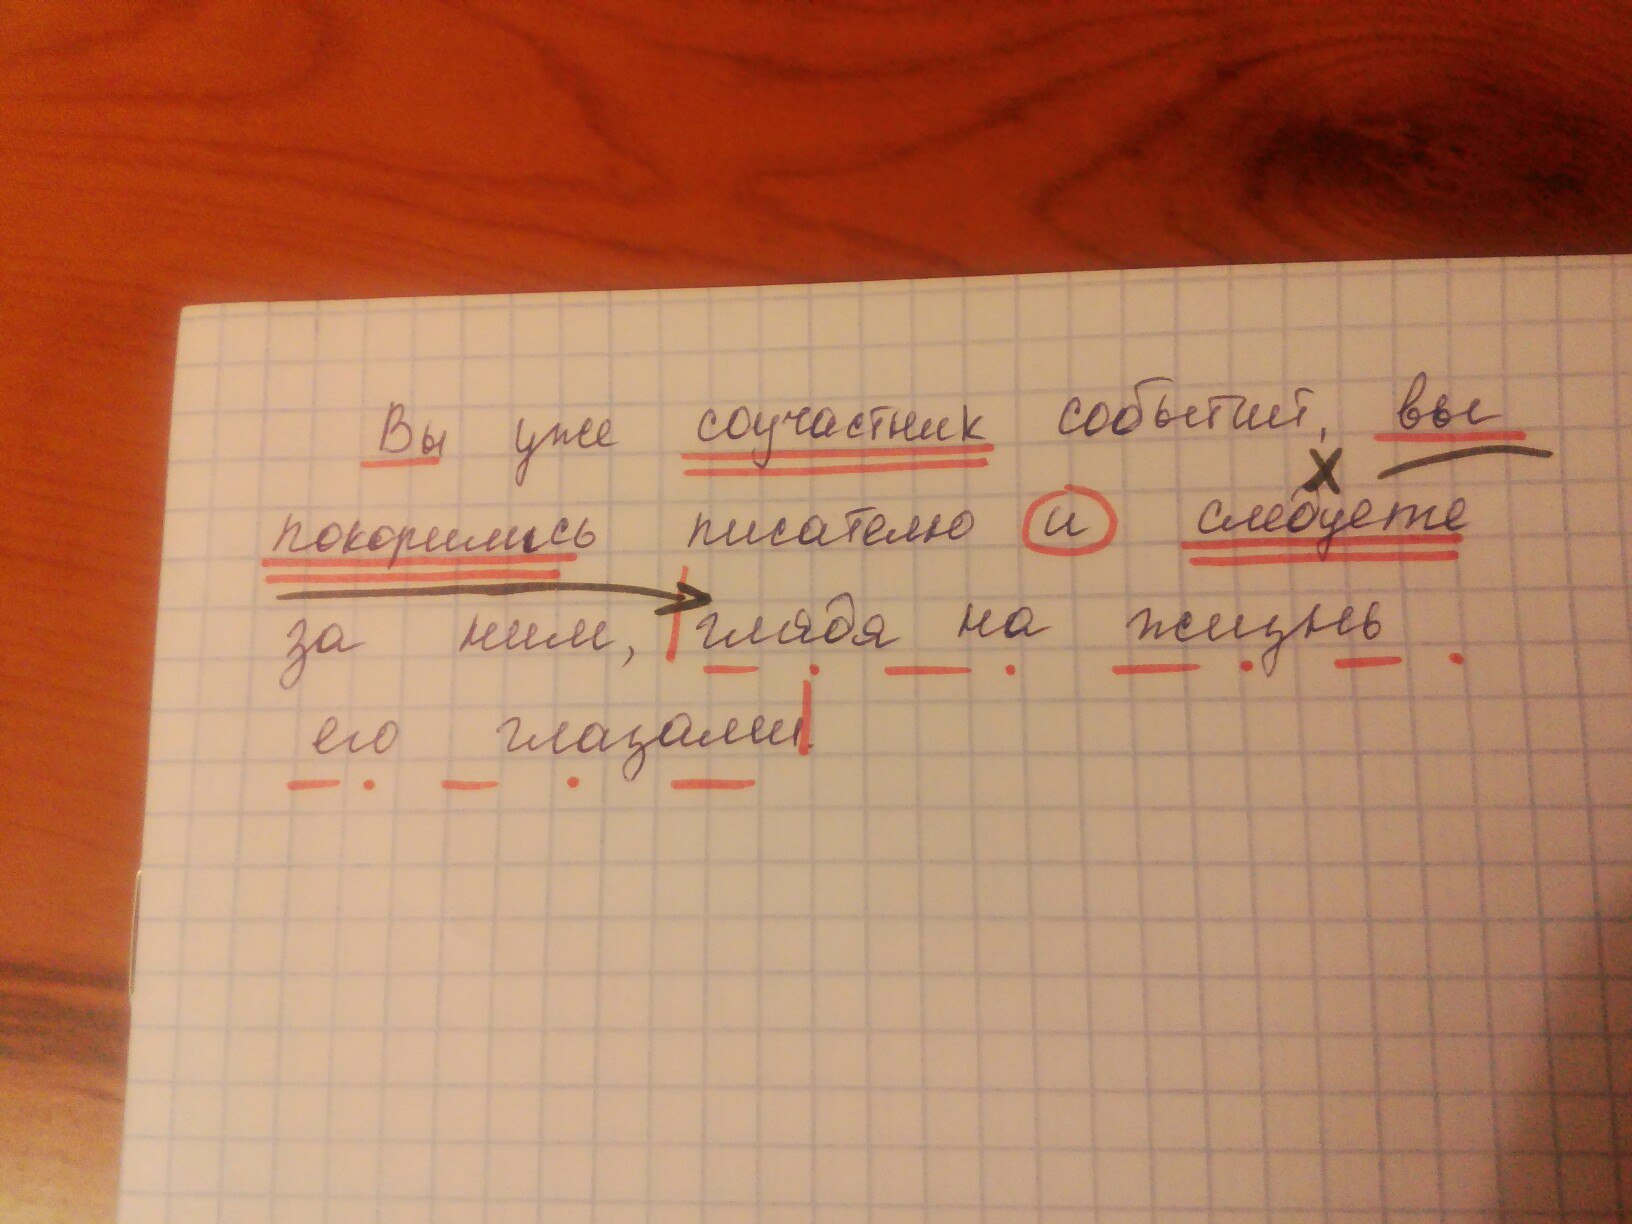 Вы уже соучастник событий, вы
покорились писателю и следуете
за ним, глядя на жизнь
его глазами.